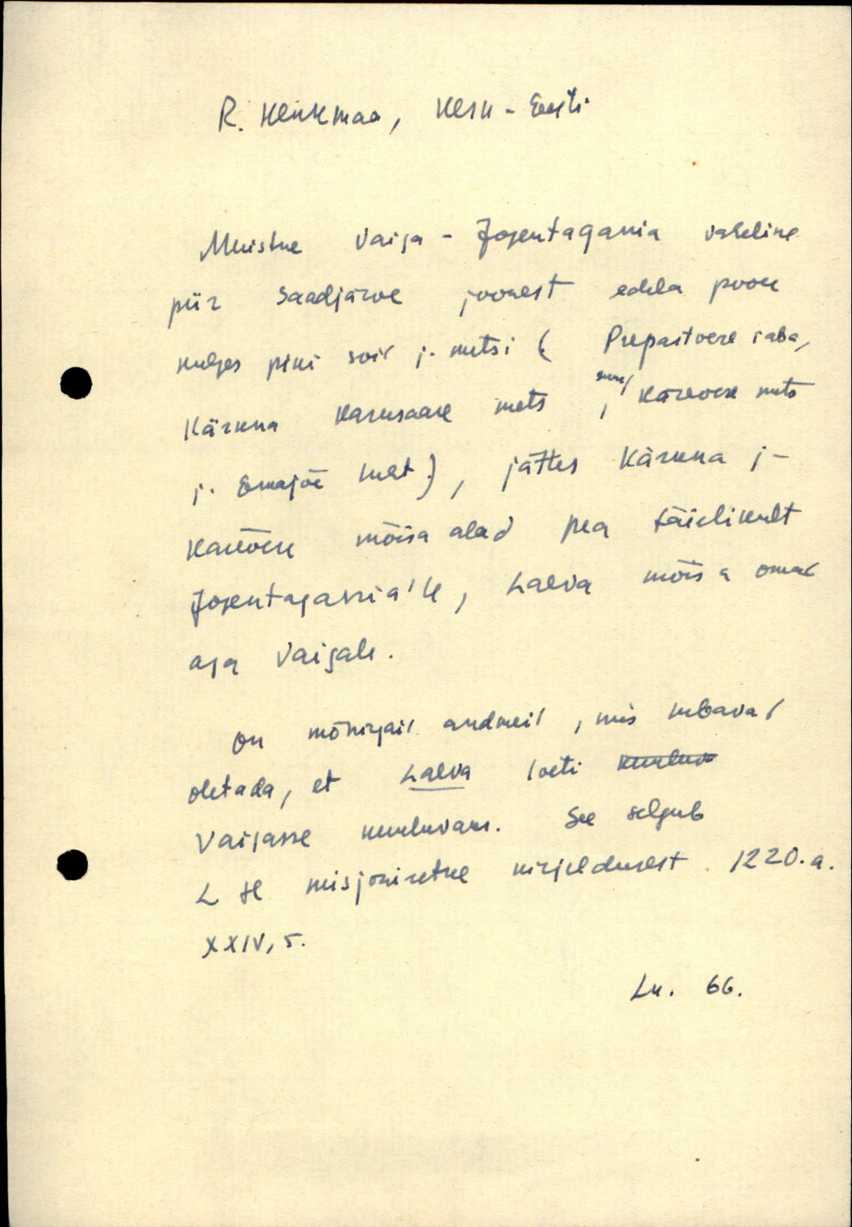 R. Kenkmaa, Kesk-Eesti
Muistne Vaiga - Jogentagania vaheline
piir Saadjärve joonest edela poole
kulges piki soid j. metsi (
Kärkna Karusaare mets , Kärevere mets
j. Emajõe luht), jättes Kärkna j-
Kärevere mõisa alad pea täielikult
Jogentagania'le, Laeva mõisa omad
aga Vaigale.
On mõningaid andmeid, mis lubavad
oletada, et Laeva loeti
Vaigasse kuuluvaks. See selgub
L H misjoniretke kirjeldusest 1220.a.
XXIV, 5.
Lk. 66.